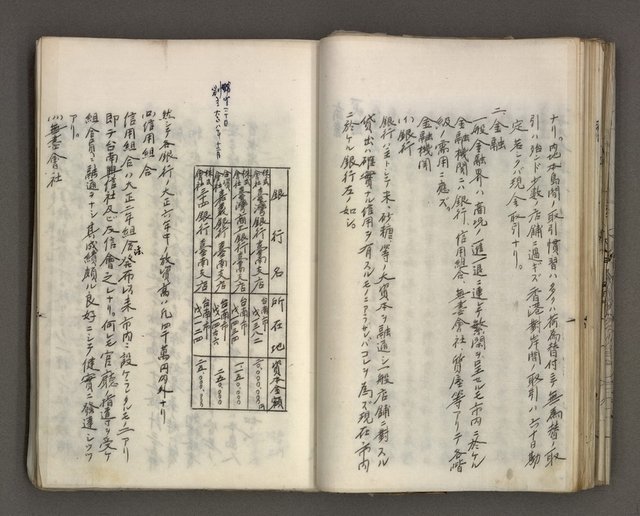 ナリ。内地々島間ノ取引慣習ハ多クハ荷為替付キ無為替ノ取
引ハ殆ンド少数ノ店舗ニ過ギズ香港對岸間ノ取引ハ六十日勘
定若シクハ現金取引ナリ。
二金融
一般金融界ハ商況ノ進退ニ連レ繁閑ヲ呈セルモ市内ニ於ケル
金融機關ニハ銀行、信用組合、無盡會社、質屋等アリテ各階
級ノ需用ニ應ズ。
金融機関
(イ)銀行
銀行ハ主トシテ米、砂糖、等ノ大資本ヲ融通シ一般店舗ニ對スル
貸出ハ確實ナル信用ヲ有スルモノニアラザレバコレヲ為サズ現在市内
ニ於ケル銀行左ノ如シ。
銀行名 所在地 資本金額
株式會社臺灣銀行臺南支店 台南市
株式會社臺灣商工銀行臺南支店 台南市
嘉義銀行臺南支店 台南市
銀行臺南支店 台南市
然シテ各銀行ノ大正六年中ノ放資高ハ九四千萬円内外ナリ
(ロ)信用組合
信用組合ハ大正二年組合法発布以来市内ニ設ケラレタルモノ二アリ
即チ台南興信社及反信會之レナリ。何レモ官廳ノ指導ヲ受ケ
組合員ニ融通ヲナシ其成績頗ル良好ニシテ健實ニ發達シツツ
アリ。
(ハ)無盡會社